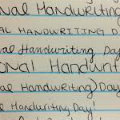 nal Handwriting
AL HANDWRITING D
nal Handwriting Day
onal Handwri
nal Handwriting Day
al Handwriting Day!